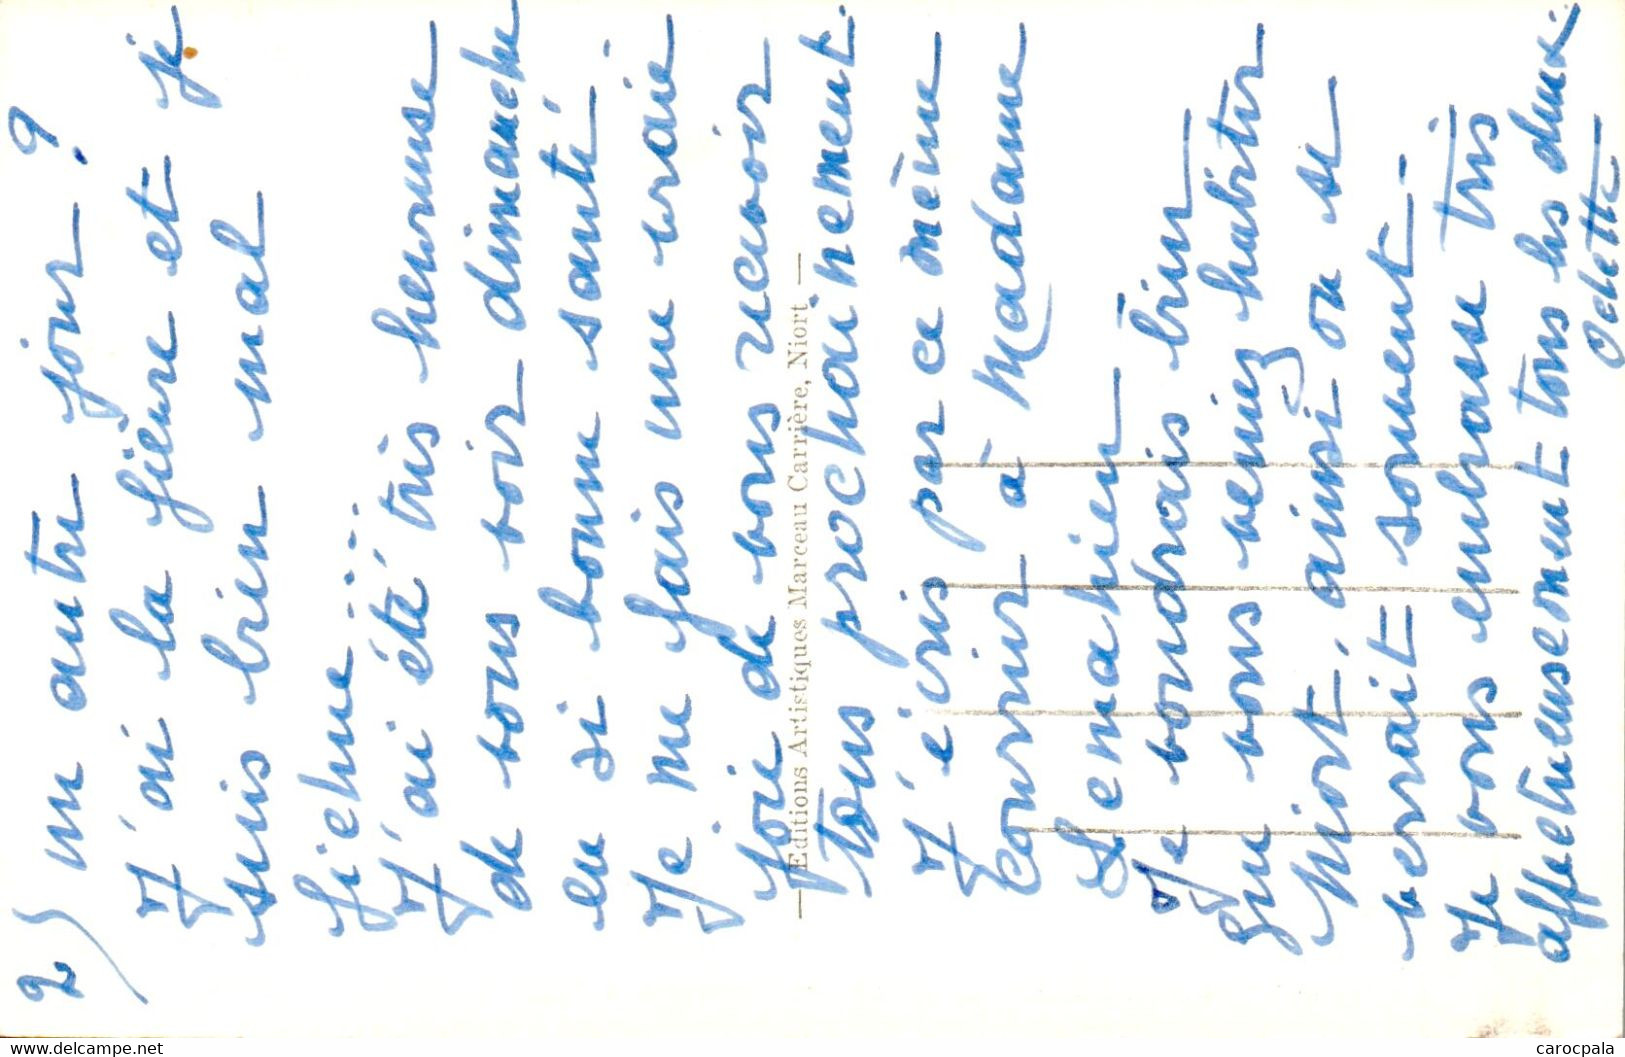 2) un autre jour - ?
J'ai la fièvre et je
suis bien mal
fichue....
J'ai été très heureuse
de vous voir dimanche
en si bonne santé.
Je me fais une vraie
joie de vous recevoir
tous prochainement.
J'écris par ce même
courrier à Madame
Lemahieu
Je voudrais bien
que vous veniez habiter
Niort, ainsi on se
verrait souvent.
Je vous embrasse très
affectueusement tous les deux.
Odette
— Editions Artistiques Marceau Carrière, Niort —
www.delcampe.net
carocpala